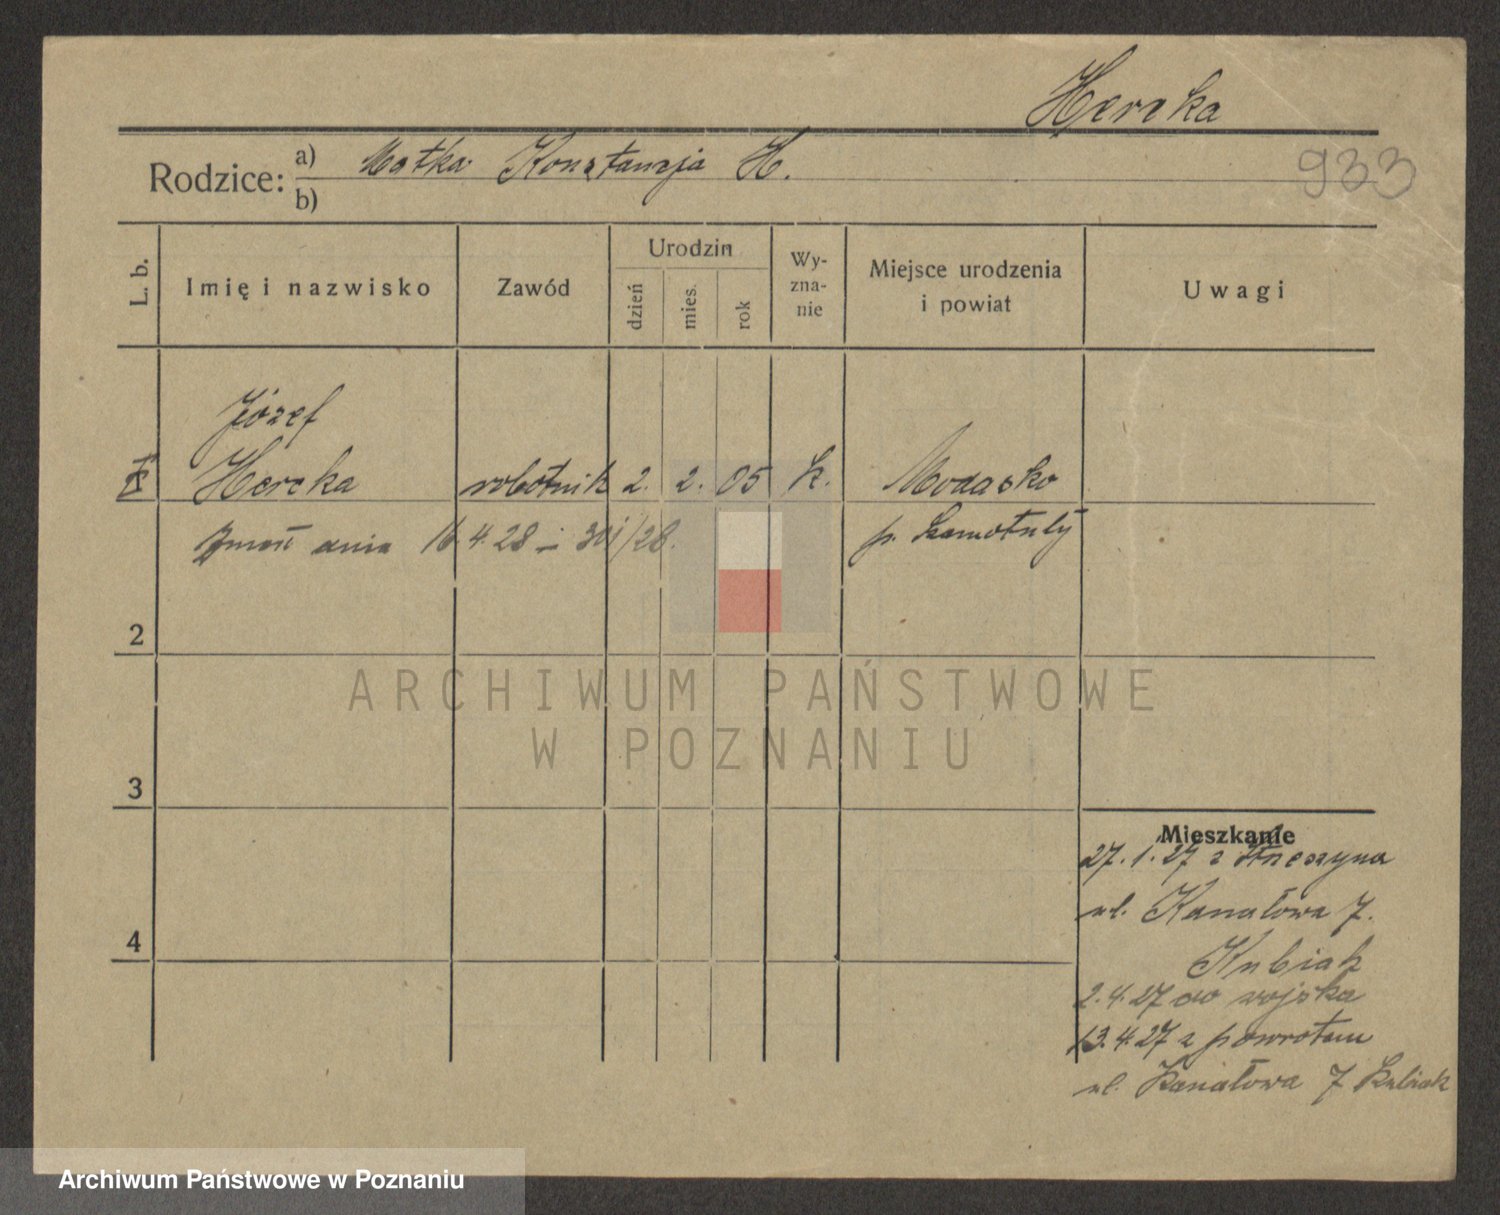 Hercka
Rodzice: a) Matka Konstancja H.
b)
933
L. b. Imię i nazwisko Zawód Urodzin dzień mies. rok Wy-zna-nie Miejsce urodzenia i powiat Uwagi
Józef
Hercka robotnik 2. 2. 05 k.
Zmarł dnia 16.4.28 p. Szamotuły
2
3
4
ARCHIWUM PAŃSTWOWE
W POZNANIU
Mieszkanie
27.1.27 z
ul. Kanałowa 7.
Kubiak
2.4.27 do wojska
13.4.27 z powrotem
ul. Kanałowa 7 Kubiak
Archiwum Państwowe w Poznaniu